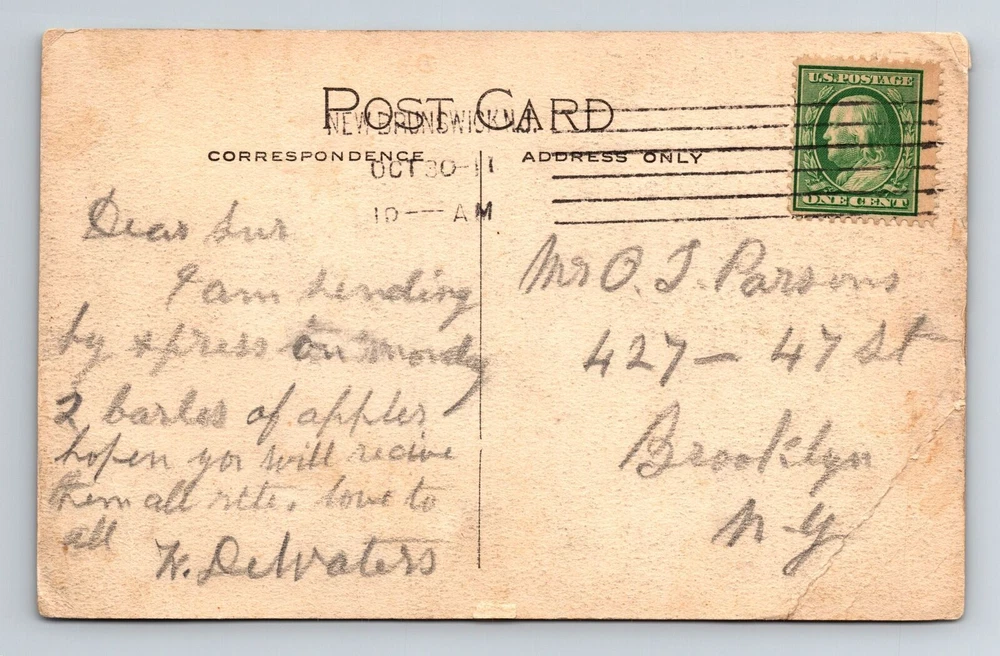 POST CARD
NEW BRUNSWICK N.J.
CORRESPONDENCE
ADDRESS ONLY
OCT 30-11
10 — AM
U.S. POSTAGE
ONE CENT
Dear Sur
I am sending
by xpress on monday
2 barles of apples
hopen you will recive
them all rite, love to
all
DeWaters
Mr O. J. Parsons
427 — 47 St
Brooklyn
N-Y